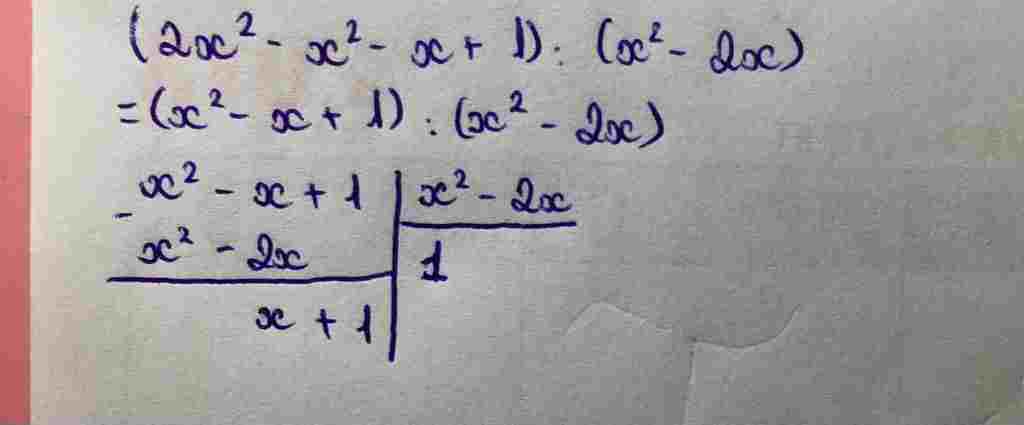 (2x² - x² - x + 1) : (x² - 2x)
= (x² - x + 1) : (x² - 2x)
x² - x + 1 | x² - 2x
- x² - 2x | 1
x + 1